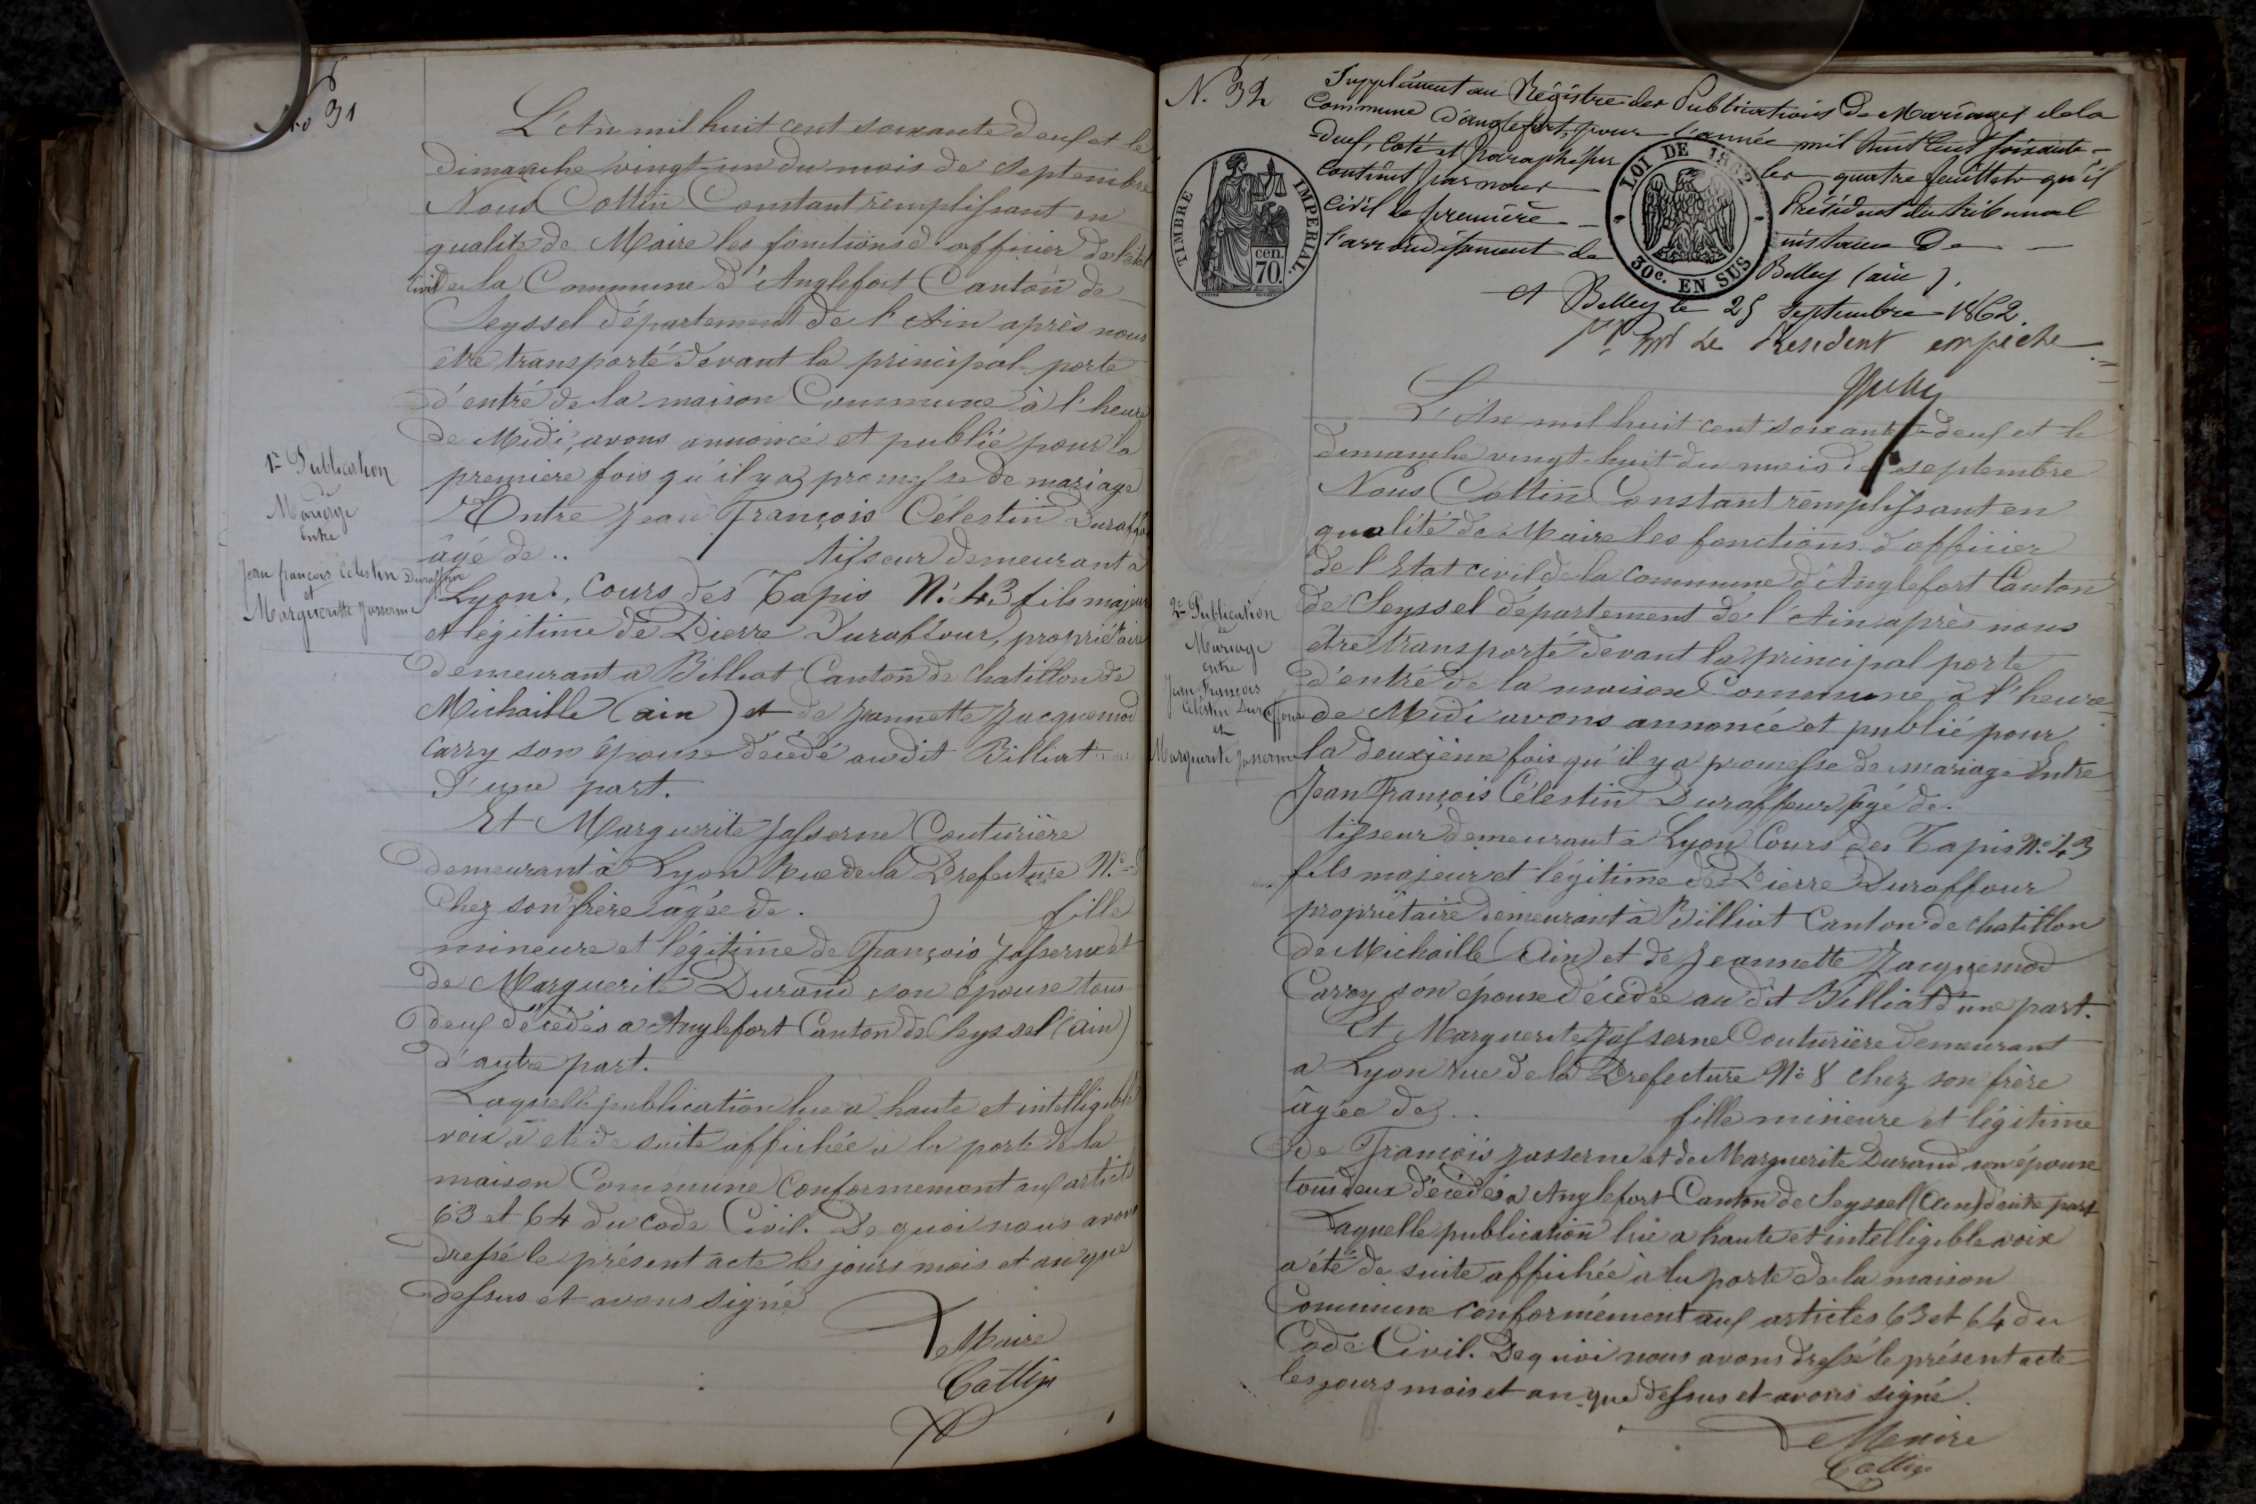 No 31
L'An mil huit cent soixante deux et le
dimanche vingt-un du mois de Septembre
Nous Cottin Constant remplissant en
qualité de Maire les fonctions d'officier de l'état
civil de la Commune d'Anglefort Canton de
Seyssel département de l'Ain après nous
être transporté devant la principal porte
d'entré de la maison Commune à l'heure
de Midi, avons annoncé et publié pour la
premiere fois qu'il y a promesse de mariage
Entre Jean François Célestin Duraffour
âgé de .. tisseur demeurant à
Lyon, Cours des Tapis N° 43 fils majeur
et légitime de Pierre Duraffour, propriétaire
demeurant a Billiat Canton de Chatillon de
Michaille (ain) et de Jeannette Jacquemod
Carry son épouse décédé audit Billiat
d'une part.
Et Marguerite Josserme Couturière
demeurant à Lyon Rue de la Prefecture N° 8
Chez son frère âgée de . fille
mineure et légitime de François Josserme et
de Marguerite Durand son épouse tous
deux décédés a Anglefort Canton de Seyssel (ain)
d'autre part.
Laquelle publication lue a haute et intelligible
voix a été de suite affichée à la porte de la
maison Commune Conformement aux articles
63 et 64 du code Civil. De quoi nous avons
dressé le présent acte les jours mois et an que
dessus et avons signé
Le Maire
Cottin
1re Publication
de
Mariage
entre
Jean françois Célestin Duraffour
et
Marguerite Josserme
N° 32
Supplément au Régistre des Publications de Mariages de la
Commune d'anglefort, pour l'année mil huit cent soixante-
deux, Coté et paraphé sur les quatre feuillets qu'il
contient par nous Président du tribunal
Civil de première instance de
l'arrondissement de Belley (ain).
A Belley le 25 Septembre 1862
Pr Mr Le Président empêché
TIMBRE IMPERIAL.
70. cen.
LOI DE 1862
30c. EN SUS
L'An mil huit cent soixante-deux et le
dimanche vingt-huit du mois de septembre
Nous Cottin Constant remplissant en
qualité de Maire les fonctions d'officier
de l'Etat civil de la commune d'Anglefort Canton
de Seyssel département de l'Ain après nous
être transporté devant la principal porte
d'entré de la maison Commune à l'heure
de Midi avons annoncé et publié pour
la deuxième fois qu'il y a promesse de mariage Entre
Jean François Célestin Duraffour âgé de
tisseur demeurant à Lyon Cours des Tapis N° 43
fils majeur et légitime de Pierre Duraffour
propriétaire demeurant à Billiat Canton de Chatillon
de Michaille (Ain) et de Jeannette Jacquemod
Carry son épouse décédée au dit Billiat d'une part.
Et Marguerite Josserme Couturière demeurant
a Lyon rue de la Prefecture N° 8 chez son frère
âgée de .. fille mineure et légitime
de François Josserme et de Marguerite Durand son épouse
tous deux décédés a Anglefort Canton de Seyssel (Ain) d'autre part
Laquelle publication lue a haute et intelligible voix
a été de suite affichée à la porte de la maison
Commune conformément aux articles 63 et 64 du
Code Civil. De quoi nous avons dressé le présent acte
les jours mois et an que dessus et avons signé.
Le Maire
Cottin
2e Publication
de
Mariage
entre
Jean François
Célestin Duraffour
et
Marguerite Josserme